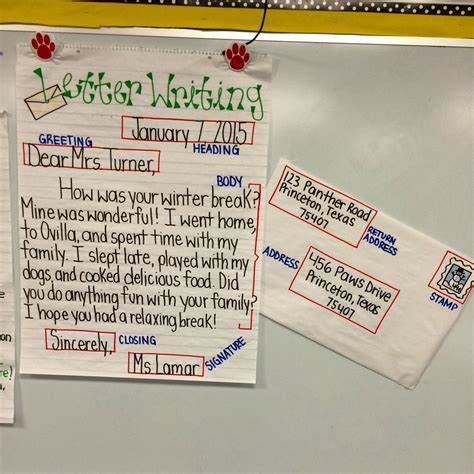 Letter Writing
January 7, 2015
GREETING
HEADING
Dear Mrs. Turner,
BODY
How was your winter break?
Mine was wonderful! I went home
to Ovilla, and spent time with my
family. I slept late, played with my
dogs, and cooked delicious food. Did
you do anything fun with your family?
I hope you had a relaxing break!
Sincerely,
CLOSING
Ms. Lamar
SIGNATURE
123 Panther Road
Princeton, Texas
75407
RETURN
ADDRESS
ADDRESS
456 Paws Drive
Princeton, Texas
75407
STAMP